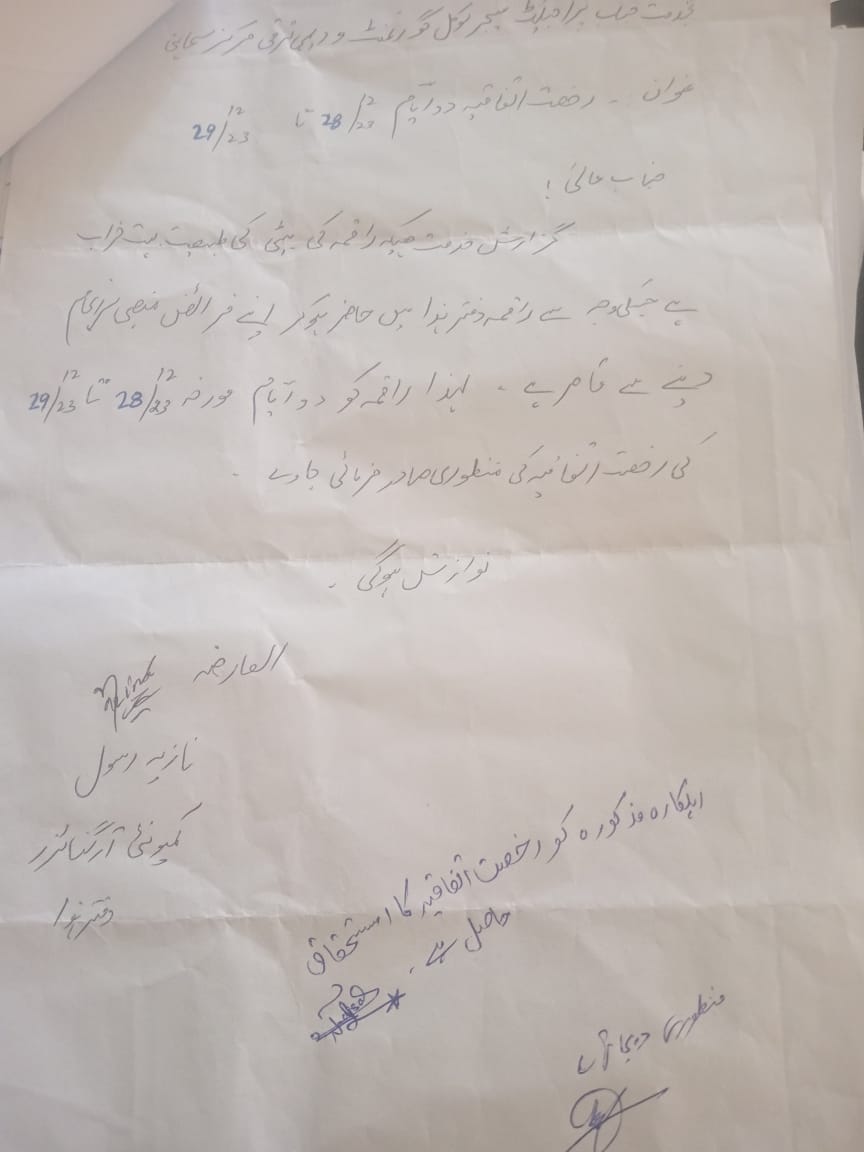 بخدمت جناب پراجیکٹ منیجر لوکل گورنمنٹ و دیہی ترقی مرکز سماہنی
عنوان ۔ رخصت اتفاقیہ دو ایام 28/12/23 تا 29/12/23
جناب عالی !
گزارش خدمت ہیکہ راقمہ کی بیٹی کی طبیعت بہت خراب
ہے جسکی وجہ سے راقمہ دفتر ہذا میں حاضر ہوکر اپنے فرائض منصبی سرانجام
دینے سے قاصر ہے ۔ لہذا راقمہ کو دو ایام مورخہ 28/12/23 تا 29/12/23
کی رخصت اتفاقیہ کی منظوری صادر فرمائی جاوے ۔
نوازش ہوگی ۔
العارضہ
نازیہ رسول
کمیونٹی آرگنائزر
دفتر ہذا
اہلکارہ مذکورہ کو رخصت اتفاقیہ کا استحقاق
حاصل ہے ۔
منظوری دیجاتی ہے